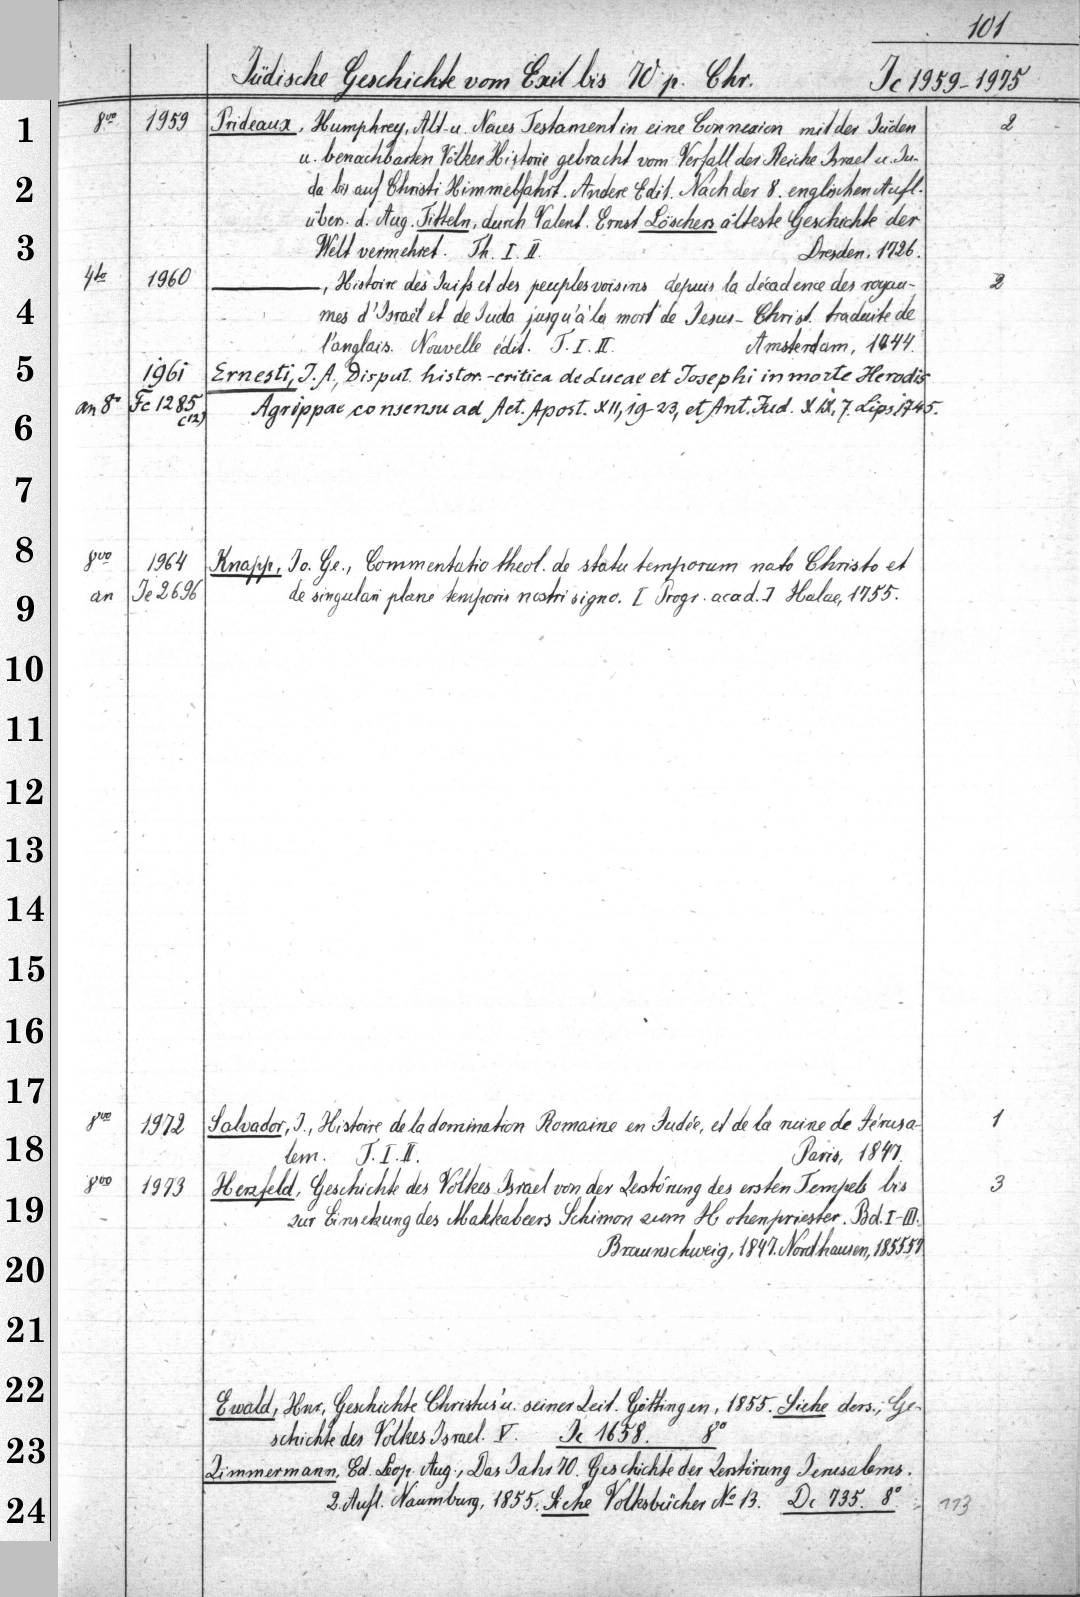 101
Jüdische Geschichte vom Exil bis 70 p. Chr. Jc 1959-1975
1
8vo 1959 Prideaux, Humphrey, Alt- u. Neues Testament in eine Connexion mit der Jüden 2
u. benachbarten Völker Historie gebracht vom Verfall der Reiche Israel u. Ju-
2
da bis auf Christi Himmelfahrt. Andere Edit. Nach der 8. englischen Aufl.
übers. d. Aug. Titteln, durch Valent. Ernst Löschers älteste Geschichte der
3
Welt vermehret. Th. I. II. Dresden, 1726.
4to 1960 ———, Histoire des Juifs et des peuples voisins depuis la décadence des royau- 2
4
mes d'Israël et de Juda jusqu'à la mort de Jesus-Christ. traduite de
l'anglais. Nouvelle édit. T. I. II. Amsterdam, 1744.
5
1961 Ernesti, J. A., Disput. histor.-critica de Lucae et Josephi in morte Herodis
an 8° Fc 1285 Agrippae consensu ad Act. Apost. XII, 19-23, et Ant. Jud. XIX, 7. Lips. 1745.
(12)
6
7
8
8vo 1964 Knapp, Jo. Ge., Commentatio theol. de statu temporum nato Christo et
an Je 2696 de singulari plane temporis nostri signo. [Progr. acad.] Halae, 1755.
9
10
11
12
13
14
15
16
17
8vo 1972 Salvador, J., Histoire de la domination Romaine en Judée, et de la ruine de Jérusa- 1
18
lem. T. I. II. Paris, 1847.
8vo 1973 Herzfeld, Geschichte des Volkes Israel von der Zerstörung des ersten Tempels bis 3
19
zur Einsetzung des Makkabeers Schimon zum Hohenpriester. Bd. I-III.
Braunschweig, 1847. Nordhausen, 1855.57
20
21
22
Ewald, Hnr., Geschichte Christus' u. seiner Zeit. Göttingen, 1855. Siehe ders., Ge-
schichte des Volkes Israel. V. Jc 1658. 8°
23
Zimmermann, Ed. Leop. Aug., Das Jahr 70. Geschichte der Zerstörung Jerusalems.
24
2. Aufl. Naumburg, 1855. Siehe Volksbücher No 13. Dc 735. 8° 113